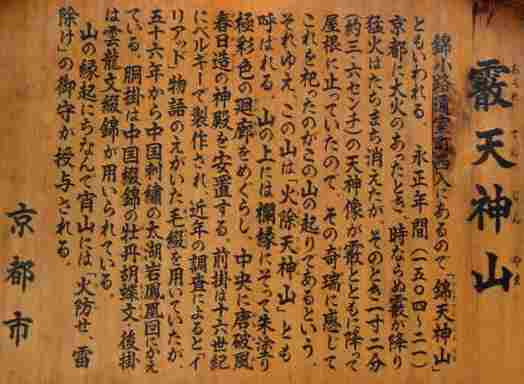 霰天神山
あられ てん じん やま
錦小路通室町西入にあるので「錦天神山」
ともいわれる。永正年間（一五〇四〜二一）
京都に大火のあったとき、時ならぬ霰が降り
猛火はたちまち消えたが、そのとき一寸二分
（約三・六センチ）の天神像が霰とともに降って
屋根に止っていたので、その奇瑞に感じて
これを祀ったのがこの山の起りであるという。
それゆえ、この山は「火除天神山」とも
呼ばれる。山の上には欄縁にそって朱塗り
極彩色の廻廊をめぐらし、中央に唐破風
春日造の神殿を安置する。前掛は十六世紀
にベルギーで製作され、近年の調査によると「イ
リアッド」物語のえがいた毛綴を用いていたが、
五十六年から中国刺繍の太湖岩鳳凰図にかえ
ている。胴掛は中国綴錦の牡丹胡蝶文、後掛
は雲龍文綴錦が用いられている。
山の縁起にちなんで宵山には「火防せ、雷
除け」の御守が授与される。
京都市